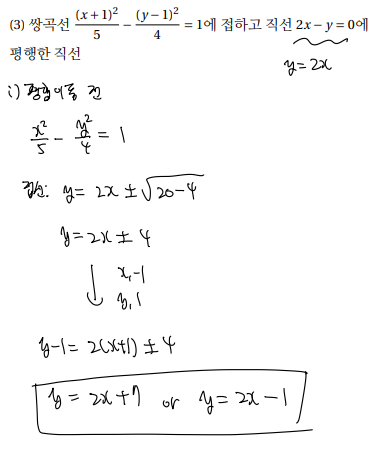 (3) 쌍곡선 (x+1)²/5 − (y−1)²/4 = 1에 접하고 직선 2x − y = 0에
평행한 직선
y = 2x
i) 평행이동 전
x²/5 − y²/4 = 1
접선: y = 2x ± √(20−4)
y = 2x ± 4
↓ x, −1
y, 1
y−1 = 2(x+1) ± 4
y = 2x+7 or y = 2x−1